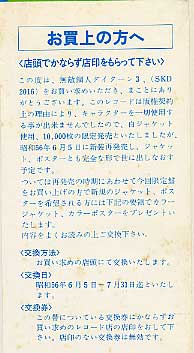 お買上の方へ
〈店頭でかならず店印をもらって下さい〉
この度は、無敵鋼人ダイターン3、(SKD
2016)をお買い求めいただき、まことにあり
がとうございます。このレコードは版権契約
上の理由により、キャラクターを一切使用す
る事が出来ませんでしたので、白ジャケット
使用、10,000枚の限定発売といたしましたが、
昭和56年6月5日に新装再発売し、ジャケッ
ト、ポスターとも完全な形で世に出しなおす
予定です。
ついては再発売の時期にあわせて今回限定盤
をお買い上げの方で新規のジャケット、ポス
ターを希望される方には下記の要領でカラー
ジャケット、カラーポスターをプレゼントい
たします。
内容をよくお読みの上ご交換下さい。
〈交換方法〉
お買い求めの店頭にて交換いたします。
〈交換日〉
昭和56年6月5日~7月31日迄といたし
ます。
〈交換券〉
この帯についている交換券にかならずお
買い求めのレコード店の店印をおして下
さい。店印のない交換券は無効です。